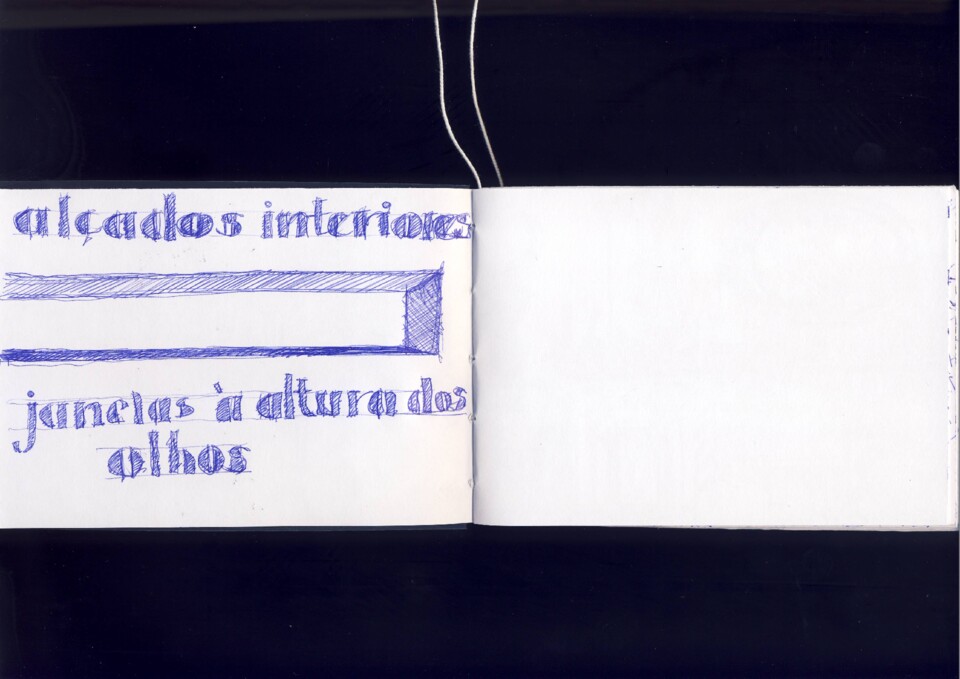 alçados interiores
janelas à altura dos
olhos